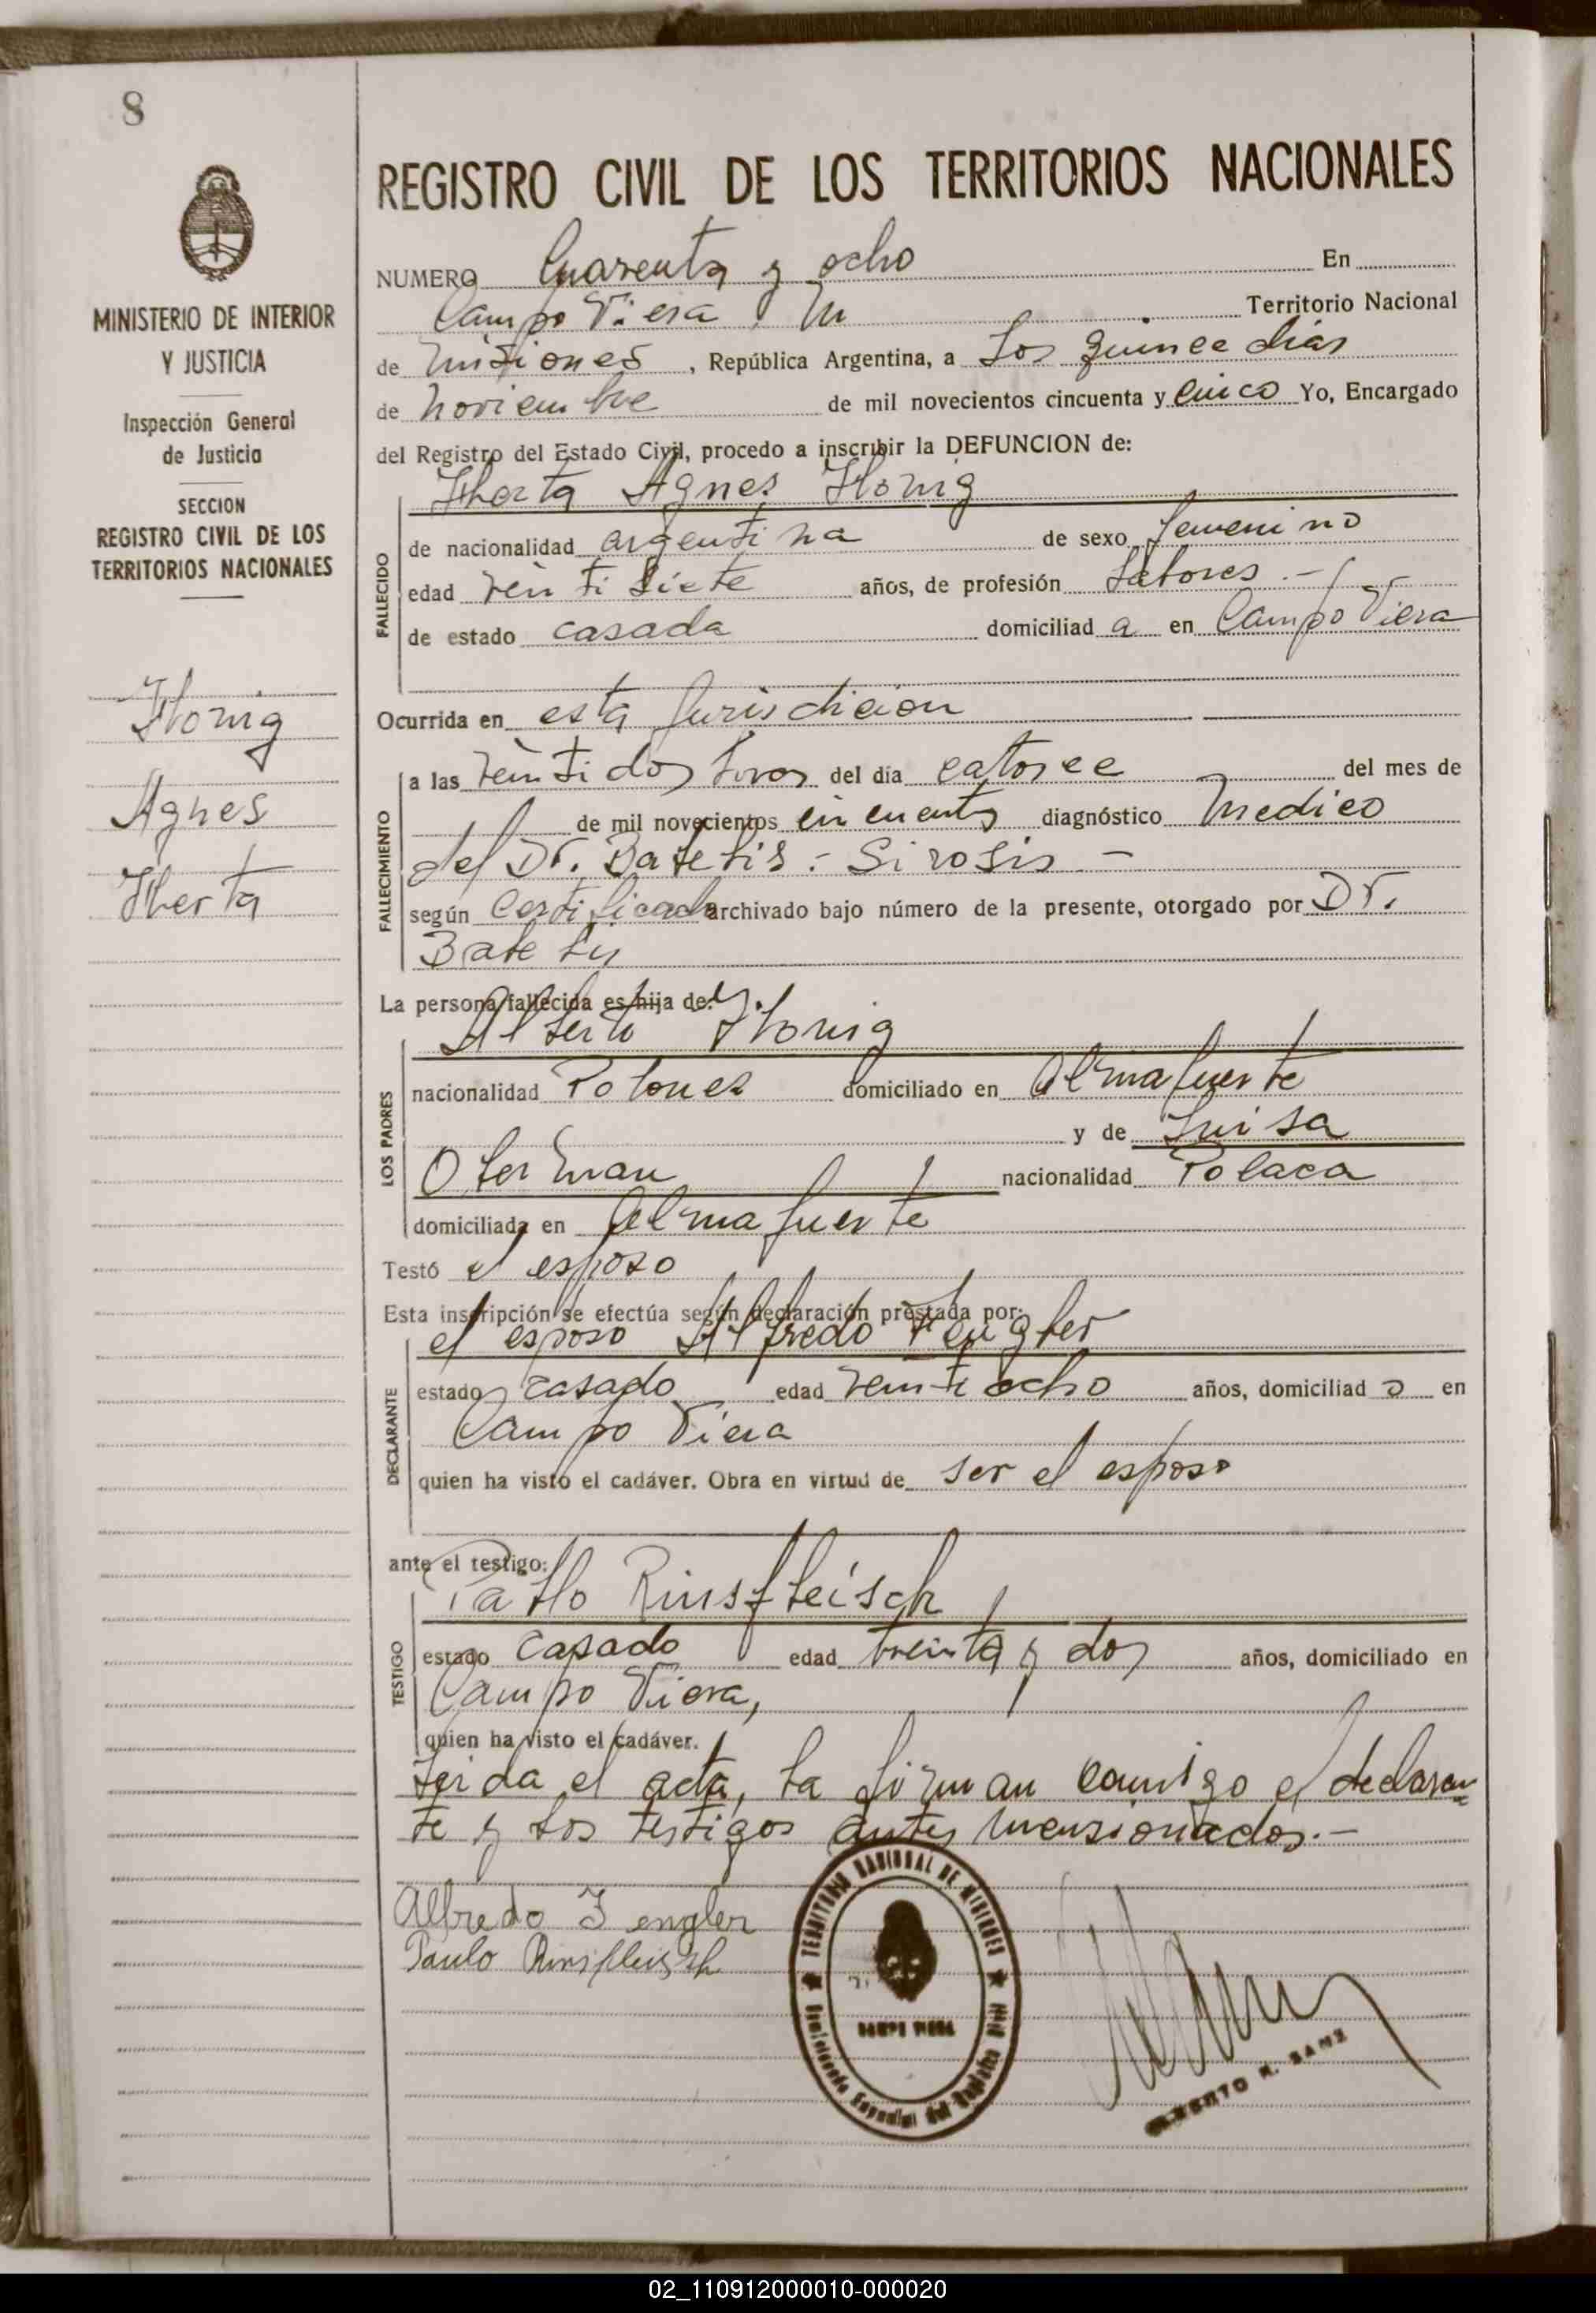 8
MINISTERIO DE INTERIOR
Y JUSTICIA
Inspección General
de Justicia
SECCION
REGISTRO CIVIL DE LOS
TERRITORIOS NACIONALES
Honig
Agnes
Herta
REGISTRO CIVIL DE LOS TERRITORIOS NACIONALES
NUMERO Cuarenta y ocho En
Campo Viera, Territorio Nacional
de Misiones, República Argentina, a Los quince dias
de Noviembre de mil novecientos cincuenta y Cinco Yo, Encargado
del Registro del Estado Civil, procedo a inscribir la DEFUNCION de:
Herta Agnes Honig
FALLECIDO
de nacionalidad argentina de sexo femenino
edad veinti siete años, de profesión Labores.-
de estado casada domiciliad a en Campo Viera
Ocurrida en esta Jurisdicion
FALLECIMIENTO
a las veintidos horas del día catorce del mes de
de mil novecientos cincuenta diagnóstico Medico
del Dr. - Sirosis -
según Certificado archivado bajo número de la presente, otorgado por Dr.
La persona fallecida es hija de:
LOS PADRES
Alberto Honig
nacionalidad Polones domiciliado en Almafuerte
y de Luisa
nacionalidad Polaca
domiciliada en Almafuerte
Testó el esposo
Esta inscripción se efectúa según declaración prestada por:
DECLARANTE
el esposo Alfredo Fengler
estado casado edad veinti ocho años, domiciliad o en
Campo Viera
quien ha visto el cadáver. Obra en virtud de ser el esposo
ante el testigo:
TESTIGO
Pablo Rinsfleisch
estado casado edad treinta y dos años, domiciliado en
Campo Viera,
quien ha visto el cadáver.
Leida el acta, la firman comigo el declaran
te y los testigos antes mensionados.-
Alfredo Fengler
Paulo Rinsfleisch
TERRITORIO NACIONAL DE MISIONES
CAMPO VIERA
02_110912000010-000020